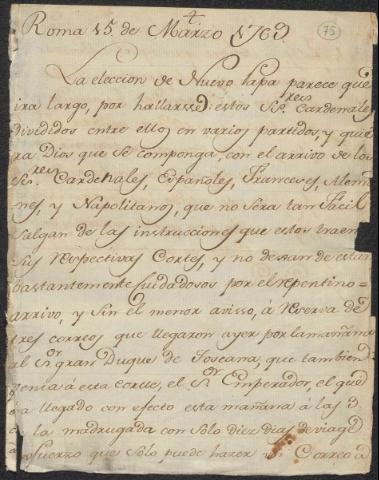 Roma 15. de Marzo 1769. 75
La eleccion de Nuevo Papa parece que
ira largo, por hallarse estos SS.res Cardenales
divididos entre ellos en varios partidos, y quie
ra Dios que se componga, con el arrivo de los
SS.res Cardenales, Españoles, Franceses, Alema
nes, y Napolitanos, que no sera tan facil
salgan de las instrucciones que estos traen
sus respectivas Cortes, y no dexan de estar
bastantemente cuidadosos por el repentino
arrivo, y sin el menor avisso, à reserva de
tres correos, que llegaron ayer por la mañana
al Sor gran Duque de Toscana, que tambien
venia à esta Corte, el Sor Emperador, el que
a llegado con efecto esta mañana à las 3
la madrugada con solo diez dias de viage
esfuerzo que solo puede hazer Correo à